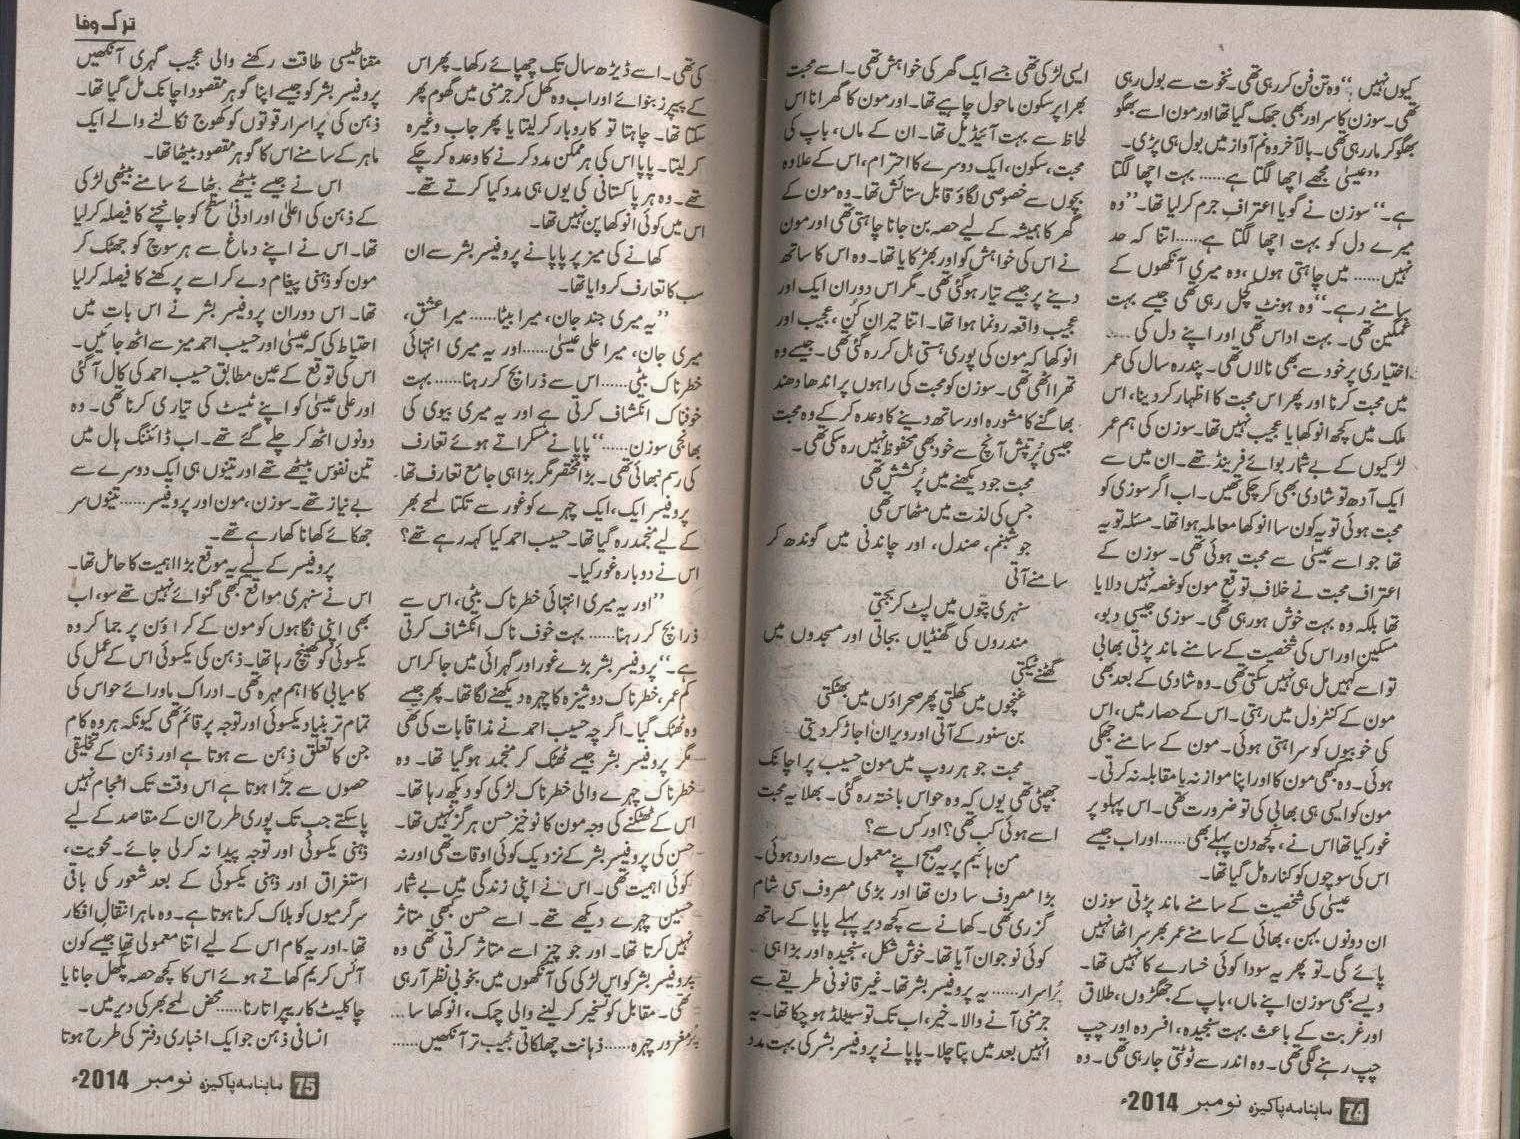 کیوں نہیں؟“ وہ تن فن کر رہی تھی۔ نخوت سے بول رہی
تھی۔ سوزن کا سر اور بھی جھک گیا تھا اور مون اسے بھگو
بھگو کر مار رہی تھی۔ بالآخر وہ نم آواز میں بول ہی پڑی۔
”عیسیٰ مجھے اچھا لگتا ہے...... بہت اچھا لگتا
ہے۔“ سوزن نے گویا اعترافِ جرم کر لیا تھا۔ ”وہ
میرے دل کو بہت اچھا لگتا ہے......اتنا کہ حد
نہیں...... میں چاہتی ہوں، وہ میری آنکھوں کے
سامنے رہے۔“ وہ ہونٹ کچل رہی تھی جیسے بہت
غمگین تھی۔ بہت اداس تھی اور اپنے دل کی
اختیاری پر خود سے بھی نالاں تھی۔ پندرہ سال کی عمر
میں محبت کرنا اور پھر اس محبت کا اظہار کر دینا، اس
ملک میں کچھ انوکھا یا عجیب نہیں تھا۔ سوزن کی ہم عمر
لڑکیوں کے بے شمار بوائے فرینڈ تھے۔ ان میں سے
ایک آدھ تو شادی بھی کر چکی تھیں۔ اب اگر سوزی کو
محبت ہوئی تو یہ کون سا انوکھا معاملہ ہوا تھا۔ مسئلہ تو یہ
تھا جو اسے عیسیٰ سے محبت ہوئی تھی۔ سوزن کے
اعترافِ محبت نے خلافِ توقع مون کو غصہ نہیں دلایا
تھا بلکہ وہ بہت خوش ہو رہی تھی۔ سوزی جیسی دبو،
مسکین اور اس کی شخصیت کے سامنے ماند پڑتی بھابی
تو اسے کہیں مل ہی نہیں سکتی تھی۔ وہ شادی کے بعد بھی
مون کے کنٹرول میں رہتی۔ اس کے حصار میں، اس
کی خوبیوں کو سراہتی ہوئی۔ مون کے سامنے جھکی
ہوئی۔ وہ بھی مون کا اور اپنا موازنہ یا مقابلہ نہ کرتی۔
مون کو ایسی ہی بھابی کی تو ضرورت تھی۔ اس پہلو پر
غور کیا تھا اس نے، کچھ دن پہلے بھی...... اور اب جیسے
اس کی سوچوں کو کنارہ مل گیا تھا۔
عیسیٰ کی شخصیت کے سامنے ماند پڑتی سوزن
ان دونوں بہن، بھائی کے سامنے عمر بھر سر اٹھا نہیں
پائے گی۔ تو پھر یہ سودا کوئی خسارے کا نہیں تھا۔
ویسے بھی سوزن اپنے ماں، باپ کے جھگڑوں، طلاق
اور غربت کے باعث بہت سنجیدہ، افسردہ اور چپ
چپ رہنے لگی تھی۔ وہ اندر سے ٹوٹتی جا رہی تھی۔ وہ
ایسی لڑکی تھی جسے ایک گھر کی خواہش تھی۔ اسے محبت
بھرا پر سکون ماحول چاہیے تھا۔ اور مون کا گھرانا اس
لحاظ سے بہت آئیڈیل تھا۔ ان کے ماں، باپ کی
محبت، سکون، ایک دوسرے کا احترام، اس کے علاوہ
بچوں سے خصوصی لگاؤ قابلِ ستائش تھا۔ وہ مون کے
گھر کا ہمیشہ کے لیے حصہ بن جانا چاہتی تھی اور مون
نے اس کی خواہش کو اور بھڑکایا تھا۔ وہ اس کا ساتھ
دینے پر جیسے تیار ہو گئی تھی۔ مگر اس دوران ایک اور
عجیب واقعہ رونما ہوا تھا۔ اتنا حیران کن، عجیب اور
انوکھا کہ مون کی پوری ہستی ہل کر رہ گئی تھی۔ جیسے وہ
تھرا اٹھی تھی۔ سوزن کو محبت کی راہوں پر اندھا دھند
بھاگنے کا مشورہ اور ساتھ دینے کا وعدہ کر کے وہ محبت
جیسی پُر تپش آنچ سے خود بھی محفوظ نہیں رہ سکی تھی۔
محبت جو دیکھنے میں پُرکشش تھی
جس کی لذت میں مٹھاس تھی
جو شبنم، صندل، اور چاندنی میں گوندھ کر
سامنے آتی
سنہری پتوں میں لپٹ کر بجتی
مندروں کی گھنٹیاں بجاتی اور مسجدوں میں
گھٹنے ٹیکتی
غنچوں میں کھلتی پھر صحراؤں میں بھٹکتی
بن سنور کے آتی اور ویران اجاڑ کر دیتی
محبت جو ہر روپ میں مون حسیب پر اچانک
جھپٹی تھی یوں کہ وہ حواس باختہ رہ گئی۔ بھلا یہ محبت
اسے ہوئی کب تھی؟ اور کس سے؟
من ہائیم پر یہ صبح اپنے معمول سے وارد ہوئی۔
بڑا مصروف سا دن تھا اور بڑی مصروف سی شام
گزری تھی۔ کھانے سے کچھ دیر پہلے پاپا کے ساتھ
کوئی نوجوان آیا تھا۔ خوش شکل، سنجیدہ اور بڑا ہی
پُراسرار...... یہ پروفیسر بشر تھا۔ غیر قانونی طریقے سے
جرمنی آنے والا۔ خیر، اب تک تو سیٹلڈ ہو چکا تھا۔ یہ
انہیں بعد میں پتا چلا۔ پاپا نے پروفیسر بشر کی بہت مدد
74 ماہنامہ پاکیزہ نومبر 2014ء
ترک وفا
کی تھی۔ اسے ڈیڑھ سال تک چھپائے رکھا۔ پھر اس
کے پیپرز بنوائے اور اب وہ کھل کر جرمنی میں گھوم پھر
سکتا تھا۔ چاہتا تو کاروبار کر لیتا یا پھر جاب وغیرہ
کر لیتا۔ پاپا اس کی ہر ممکن مدد کرنے کا وعدہ کر چکے
تھے۔ وہ ہر پاکستانی کی یوں ہی مدد کیا کرتے تھے۔
اس میں کوئی انوکھا پن نہیں تھا۔
کھانے کی میز پر پاپا نے پروفیسر بشر سے ان
سب کا تعارف کروایا تھا۔
”یہ میری جند جان، میرا بیٹا...... میرا عشق،
میری جان، میرا علی عیسیٰ......اور یہ میری انتہائی
خطرناک بیٹی...... اس سے ذرا بچ کر رہنا...... بہت
خوفناک انکشاف کرتی ہے اور یہ میری بیوی کی
بھانجی سوزن......“ پاپا نے مسکراتے ہوئے تعارف
کی رسم نبھائی تھی۔ بڑا مختصر مگر بڑا ہی جامع تعارف تھا۔
پروفیسر ایک، ایک چہرے کو غور سے تکتا لمحے بھر
کے لیے منجمد رہ گیا تھا۔ حسیب احمد کیا کہہ رہے تھے؟
اس نے دوبارہ غور کیا۔
”اور یہ میری انتہائی خطرناک بیٹی، اس سے
ذرا بچ کر رہنا...... بہت خوف ناک انکشاف کرتی
ہے۔“ پروفیسر بشر بڑے غور اور گہرائی میں جا کر اس
کم عمر، خطرناک دوشیزہ کا چہرہ دیکھنے لگا تھا۔ پھر جیسے
وہ ٹھٹک گیا۔ اگرچہ حسیب احمد نے مذاقاً بات کی تھی
مگر پروفیسر بشر جیسے ٹھٹک کر منجمد ہو گیا تھا۔ وہ
خطرناک چہرے والی خطرناک لڑکی کو دیکھ رہا تھا۔
اس کے ٹھٹکنے کی وجہ مون کا نوخیز حسن ہرگز نہیں تھا۔
حسن کی پروفیسر بشر کے نزدیک کوئی اوقات تھی اور نہ
کوئی اہمیت تھی۔ اس نے اپنی زندگی میں بے شمار
حسین چہرے دیکھے تھے۔ اسے حسن کبھی متاثر
نہیں کرتا تھا۔ اور جو چیز اسے متاثر کرتی تھی وہ
پروفیسر بشر کو اس لڑکی کی آنکھوں میں بخوبی نظر آ رہی
تھی۔ مقابل کو تسخیر کر لینے والی چمک، انوکھا سا
پُر مغرور چہرہ...... ذہانت چھلکاتی عجیب تر آنکھیں......
مقناطیسی طاقت رکھنے والی عجیب گہری آنکھیں
پروفیسر بشر کو جیسے اپنا گوہرِ مقصود اچانک مل گیا تھا۔
ذہن کی پُراسرار قوتوں کو کھوج نکالنے والے ایک
ماہر کے سامنے اس کا گوہرِ مقصود بیٹھا تھا۔
اس نے جیسے بیٹھے بٹھائے سامنے بیٹھی لڑکی
کے ذہن کی اعلیٰ اور ادنیٰ سطح کو جانچنے کا فیصلہ کر لیا
تھا۔ اس نے اپنے دماغ سے ہر سوچ کو جھٹک کر
مون کو ذہنی پیغام دے کر اسے پرکھنے کا فیصلہ کر لیا
تھا۔ اس دوران پروفیسر بشر نے اس بات میں
احتیاط کی کہ عیسیٰ اور حسیب احمد میز سے اٹھ جائیں۔
اس کی توقع کے عین مطابق حسیب احمد کی کال آ گئی
اور علی عیسیٰ کو اپنے ٹیسٹ کی تیاری کرنا تھی۔ وہ
دونوں اٹھ کر چلے گئے تھے۔ اب ڈائننگ ہال میں
تین نفوس بیٹھے تھے اور تینوں ہی ایک دوسرے سے
بے نیاز تھے۔ سوزن، مون اور پروفیسر...... تینوں سر
جھکائے کھانا کھا رہے تھے۔
پروفیسر کے لیے یہ موقع بڑا اہمیت کا حامل تھا۔
اس نے سنہری مواقع بھی گنوائے نہیں تھے سو، اب
بھی اپنی نگاہوں کو مون کے کراؤن پر جما کر وہ
یکسوئی کو کھینچ رہا تھا۔ ذہن کی یکسوئی اس کے عمل کی
کامیابی کا اہم مہرہ تھی۔ ادراک ماورائے حواس کی
تمام تر بنیاد یکسوئی اور توجہ پر قائم تھی کیونکہ ہر وہ کام
جن کا تعلق ذہن سے ہوتا ہے اور ذہن کے تخلیقی
حصوں سے جڑا ہوتا ہے اس وقت تک انجام نہیں
پا سکتے جب تک پوری طرح ان کے مقاصد کے لیے
ذہنی یکسوئی اور توجہ پیدا نہ کر لی جائے۔ محویت،
استغراق اور ذہنی یکسوئی کے بعد شعور کی باقی
سرگرمیوں کو بلاک کرنا ہوتا ہے۔ وہ ماہر انتقالِ افکار
تھا۔ اور یہ کام اس کے لیے اتنا معمولی تھا جیسے کون
آئس کریم کھاتے ہوئے اس کا کچھ حصہ پگھل جانا یا
چاکلیٹ کا ریپر اتارنا...... محض لمحے بھر کی دیر میں۔
انسانی ذہن جو ایک اخباری دفتر کی طرح ہوتا
75 ماہنامہ پاکیزہ نومبر 2014ء